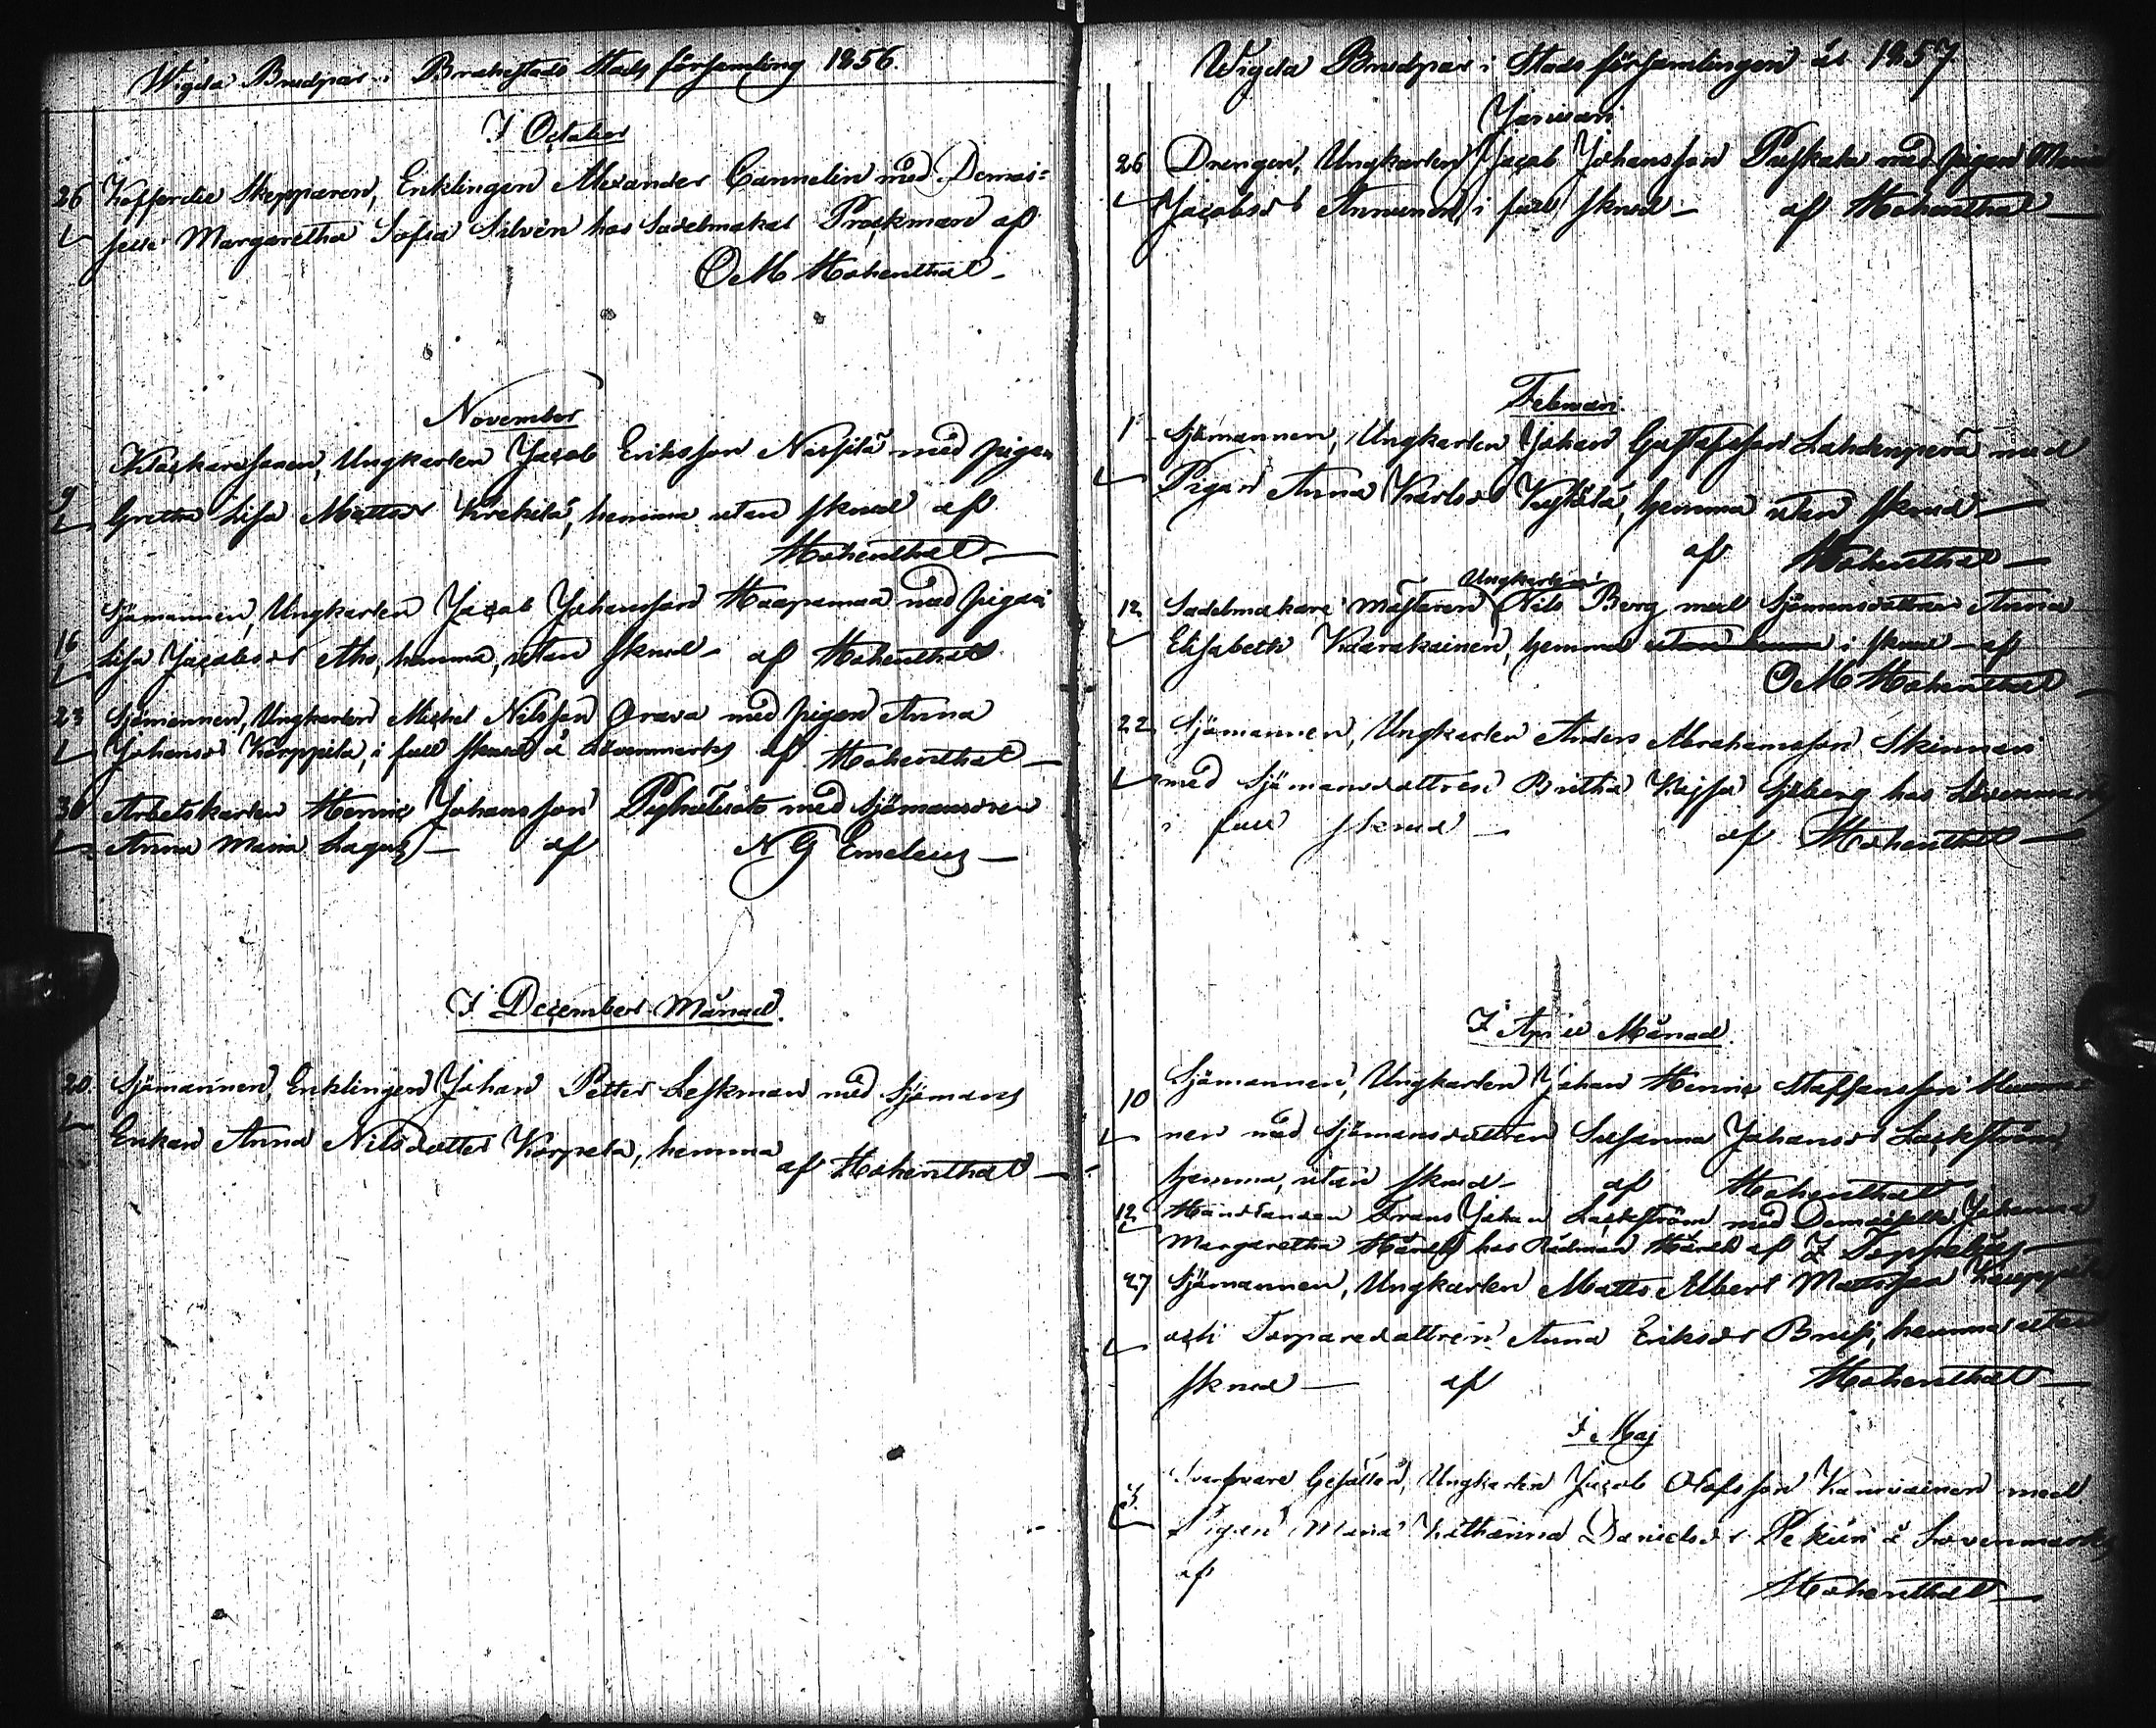 Wigda Brudpar i Brahestads Stads församling 1856.
I October
26 Kofferdie Skepparen, Enklingen Alexander Cannelin med Demoi-
selle Margaretha Sofia Silvén hos Sadelmakar Brockman af
O M Hohenthal
November
Ungkarlen Jacob Eriksson Nissilä med pigan
9 Gretha Lisa Mattsdr Krekilä, hemma utan skrud af
Hohenthal
Sjömannen, Ungkarlen Jacob Johansson Haapamaa med pigan
16 Lisa Jacobsdr Aho, hemma, utan skrud af Hohenthal
23 Sjömannen, Ungkarlen Michel Nilsson Orava med pigan Anna
Johansdr Korppila, i full skrud å Lövenmarks af Hohenthal
30 Arbetskarlen Henric Johansson med Sjömansdren
Anna Maria Lagus af N G Emeleus
I December Månad.
20. Sjömannen, Enklingen Johan Petter Leskman med Sjömans
Enkan Anna Nilsdotter Korpela, hemma
af Hohenthal
Wigda Brudpar i Stads församlingen år 1857.
Januari
26 Drengen, Ungkarlen Jacob Johansson Puskala med pigan Maria
Jacobsdr Annunen, i full skrud af Hohenthal
Februari.
1 Sjömannen, Ungkarlen Johan Gustafsson Lahdenperä med
Pigan Anna Karlsdr hemma utan skrud
af Hohenthal
Ungkarlen
12 Sadelmakare mästaren Nils Berg med Sjömansdottren Anna
Elisabeth Kaarakainen, hemma utan i skrud af
O M Hohenthal
22 Sjömannen, Ungkarlen Anders Abrahamsson Skinnari
med Sjömansdottren Britha Kajsa Sjöberg hos Lövenmarks
i full skrud af Hohenthal
I April Månad.
Sjömannen, Ungkarlen Johan Henric Staffansson
10 nen med Sjömansdottren Susanna Johansdr Lackström,
hemma, utan skrud af Hohenthal
12 Handlanden Frans Johan Lackström med Demoiselle Johanna
Margaretha Hårdh hos Rådman Hårdh af Z Toppelius
27 Sjömannen, Ungkarlen Matts Albert Mattsson Kauppila
och Torparedottren Anna Eriksdr Brusi, hemma utan
skrud af Hohenthal
I Maj
3. Svarfvare Gesällen, Ungkarlen Jacob Olofsson Karvainen med
Pigan Maria Katharina Danielsdr Pekuri å Lövenmarks
af
Hohenthal